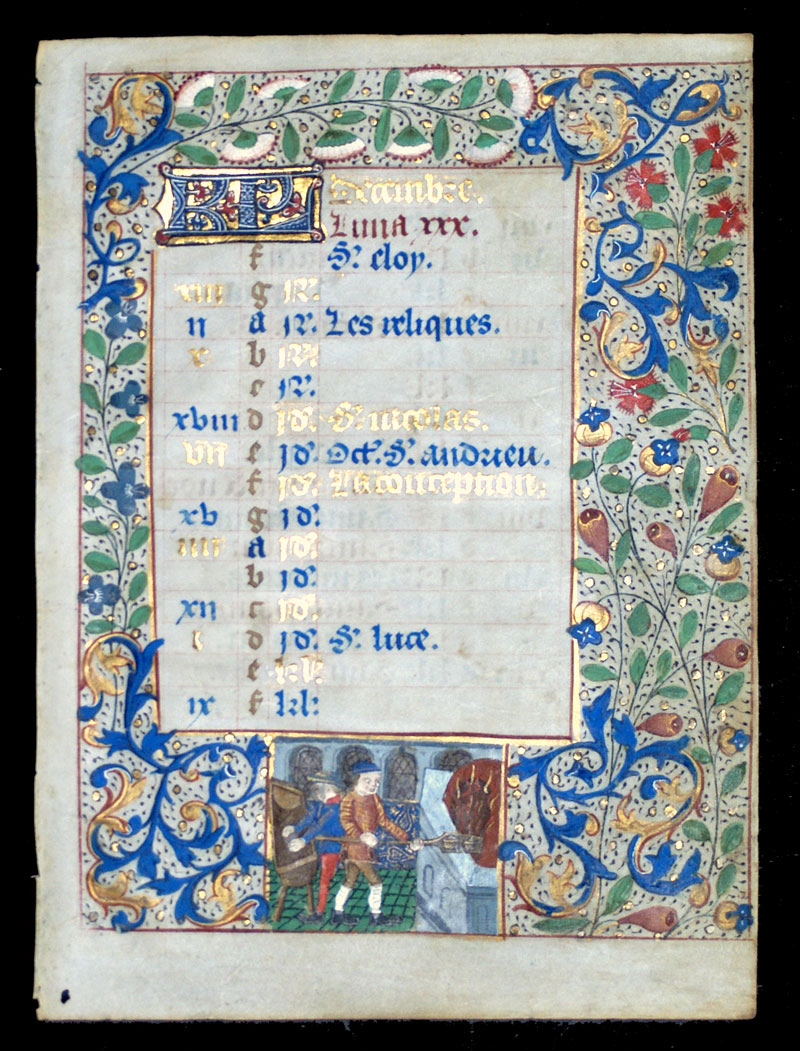 KL Decembre.
Luna xxx.
f S'. eloy.
xiii g N'.
ii a N'. Les reliques.
x b N'.
c N'.
xviii d Id'. S'. nicolas.
vii e Id'. Oct'. S'. andrieu.
f Id'. La conception.
xv g Id'.
iiii a Id'.
b Id'.
xii c Id'.
i d Id'. S'. luce.
e kl'.
ix f kl'.